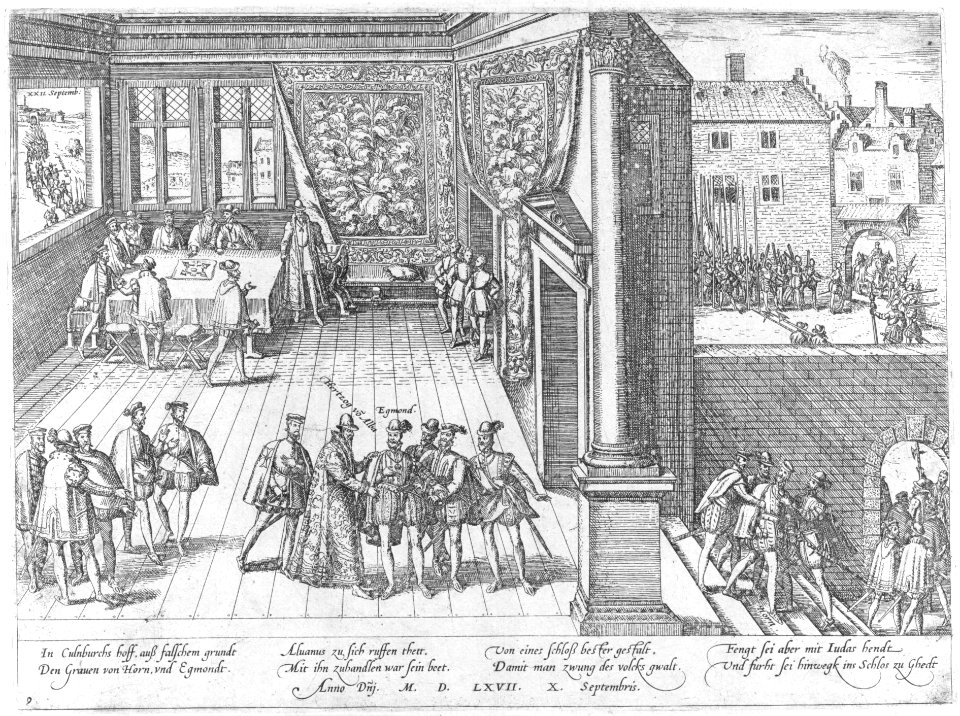 XXII Septemb.
Hertzog võ Alba
Egmond.
In Culnburchs hoff, auß falschem grundt
Den Grauen von Horn, vnd Egmondt.
Aluanus zu sich ruffen thett.
Mit ihn zuhandlen war sein beet.
Von eines schloß bester gestalt,
Damit man zwung des volcks gwalt.
Fengt sei aber mit Iudas hendt
Vnd furht sei hinwegk ins Schlos zu Ghedt
Anno Dñj. M. D. LXVII. X. Septembris.
9